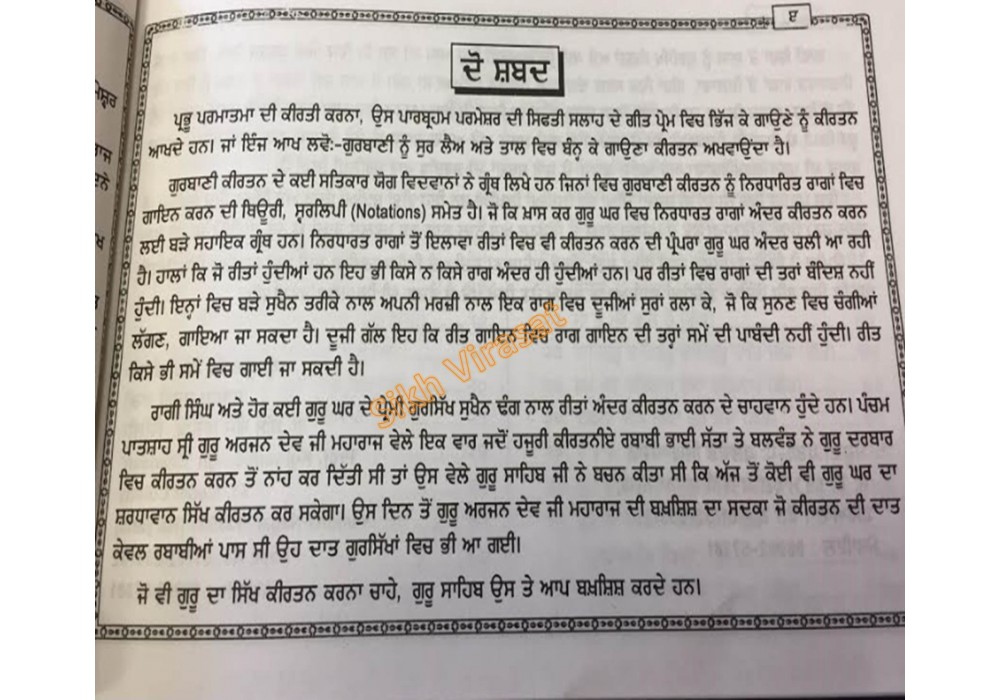 ੲ
ਦੋ ਸ਼ਬਦ
ਪ੍ਰਭੂ ਪਰਮਾਤਮਾ ਦੀ ਕੀਰਤੀ ਕਰਨਾ, ਉਸ ਪਾਰਬ੍ਰਹਮ ਪਰਮੇਸ਼ਰ ਦੀ ਸਿਫਤੀ ਸਲਾਹ ਦੇ ਗੀਤ ਪ੍ਰੇਮ ਵਿਚ ਭਿੱਜ ਕੇ ਗਾਉਣੇ ਨੂੰ ਕੀਰਤਨ
ਆਖਦੇ ਹਨ। ਜਾਂ ਇੰਜ ਆਖ ਲਵੋ:-ਗੁਰਬਾਣੀ ਨੂੰ ਸੁਰ ਲੈਅ ਅਤੇ ਤਾਲ ਵਿਚ ਬੰਨ੍ਹ ਕੇ ਗਾਉਣਾ ਕੀਰਤਨ ਅਖਵਾਉਂਦਾ ਹੈ।
ਗੁਰਬਾਣੀ ਕੀਰਤਨ ਦੇ ਕਈ ਸਤਿਕਾਰ ਯੋਗ ਵਿਦਵਾਨਾਂ ਨੇ ਗ੍ਰੰਥ ਲਿਖੇ ਹਨ ਜਿਨਾਂ ਵਿਚ ਗੁਰਬਾਣੀ ਕੀਰਤਨ ਨੂੰ ਨਿਰਧਾਰਿਤ ਰਾਗਾਂ ਵਿਚ
ਗਾਇਨ ਕਰਨ ਦੀ ਥਿਊਰੀ, ਸ੍ਵਰਲਿਪੀ (Notations) ਸਮੇਤ ਹੈ। ਜੋ ਕਿ ਖ਼ਾਸ ਕਰ ਗੁਰੂ ਘਰ ਵਿਚ ਨਿਰਧਾਰਤ ਰਾਗਾਂ ਅੰਦਰ ਕੀਰਤਨ ਕਰਨ
ਲਈ ਬੜੇ ਸਹਾਇਕ ਗ੍ਰੰਥ ਹਨ। ਨਿਰਧਾਰਤ ਰਾਗਾਂ ਤੋਂ ਇਲਾਵਾ ਰੀਤਾਂ ਵਿਚ ਵੀ ਕੀਰਤਨ ਕਰਨ ਦੀ ਪ੍ਰੰਪਰਾ ਗੁਰੂ ਘਰ ਅੰਦਰ ਚਲੀ ਆ ਰਹੀ
ਹੈ। ਹਾਲਾਂ ਕਿ ਜੋ ਰੀਤਾਂ ਹੁੰਦੀਆਂ ਹਨ ਇਹ ਭੀ ਕਿਸੇ ਨ ਕਿਸੇ ਰਾਗ ਅੰਦਰ ਹੀ ਹੁੰਦੀਆਂ ਹਨ। ਪਰ ਰੀਤਾਂ ਵਿਚ ਰਾਗਾਂ ਦੀ ਤਰਾਂ ਬੰਦਿਸ਼ ਨਹੀਂ
ਹੁੰਦੀ। ਇਨ੍ਹਾਂ ਵਿਚ ਬੜੇ ਸੁਖੈਨ ਤਰੀਕੇ ਨਾਲ ਅਪਨੀ ਮਰਜ਼ੀ ਨਾਲ ਇਕ ਰਾਗ ਵਿਚ ਦੂਜੀਆਂ ਸੁਰਾਂ ਰਲਾ ਕੇ, ਜੋ ਕਿ ਸੁਨਣ ਵਿਚ ਚੰਗੀਆਂ
ਲੱਗਣ, ਗਾਇਆ ਜਾ ਸਕਦਾ ਹੈ। ਦੂਜੀ ਗੱਲ ਇਹ ਕਿ ਰੀਤ ਗਾਇਨ ਵਿਚ ਰਾਗ ਗਾਇਨ ਦੀ ਤਰ੍ਹਾਂ ਸਮੇਂ ਦੀ ਪਾਬੰਦੀ ਨਹੀਂ ਹੁੰਦੀ। ਰੀਤ
ਕਿਸੇ ਭੀ ਸਮੇਂ ਵਿਚ ਗਾਈ ਜਾ ਸਕਦੀ ਹੈ।
ਰਾਗੀ ਸਿੰਘ ਅਤੇ ਹੋਰ ਕਈ ਗੁਰੂ ਘਰ ਦੇ ਪ੍ਰੇਮੀ ਗੁਰਸਿੱਖ ਸੁਖੈਨ ਢੰਗ ਨਾਲ ਰੀਤਾਂ ਅੰਦਰ ਕੀਰਤਨ ਕਰਨ ਦੇ ਚਾਹਵਾਨ ਹੁੰਦੇ ਹਨ। ਪੰਚਮ
ਪਾਤਸ਼ਾਹ ਸ੍ਰੀ ਗੁਰੂ ਅਰਜਨ ਦੇਵ ਜੀ ਮਹਾਰਾਜ ਵੇਲੇ ਇਕ ਵਾਰ ਜਦੋਂ ਹਜ਼ੂਰੀ ਕੀਰਤਨੀਏ ਰਬਾਬੀ ਭਾਈ ਸੱਤਾ ਤੇ ਬਲਵੰਡ ਨੇ ਗੁਰੂ ਦਰਬਾਰ
ਵਿਚ ਕੀਰਤਨ ਕਰਨ ਤੋਂ ਨਾਂਹ ਕਰ ਦਿੱਤੀ ਸੀ ਤਾਂ ਉਸ ਵੇਲੇ ਗੁਰੂ ਸਾਹਿਬ ਜੀ ਨੇ ਬਚਨ ਕੀਤਾ ਸੀ ਕਿ ਅੱਜ ਤੋਂ ਕੋਈ ਵੀ ਗੁਰੂ ਘਰ ਦਾ
ਸ਼ਰਧਾਵਾਨ ਸਿੱਖ ਕੀਰਤਨ ਕਰ ਸਕੇਗਾ। ਉਸ ਦਿਨ ਤੋਂ ਗੁਰੂ ਅਰਜਨ ਦੇਵ ਜੀ ਮਹਾਰਾਜ ਦੀ ਬਖ਼ਸ਼ਿਸ਼ ਦਾ ਸਦਕਾ ਜੋ ਕੀਰਤਨ ਦੀ ਦਾਤ
ਕੇਵਲ ਰਬਾਬੀਆਂ ਪਾਸ ਸੀ ਉਹ ਦਾਤ ਗੁਰਸਿੱਖਾਂ ਵਿਚ ਭੀ ਆ ਗਈ।
ਜੋ ਵੀ ਗੁਰੂ ਦਾ ਸਿੱਖ ਕੀਰਤਨ ਕਰਨਾ ਚਾਹੇ, ਗੁਰੂ ਸਾਹਿਬ ਉਸ ਤੇ ਆਪ ਬਖ਼ਸ਼ਿਸ਼ ਕਰਦੇ ਹਨ।
Sikh Virasat